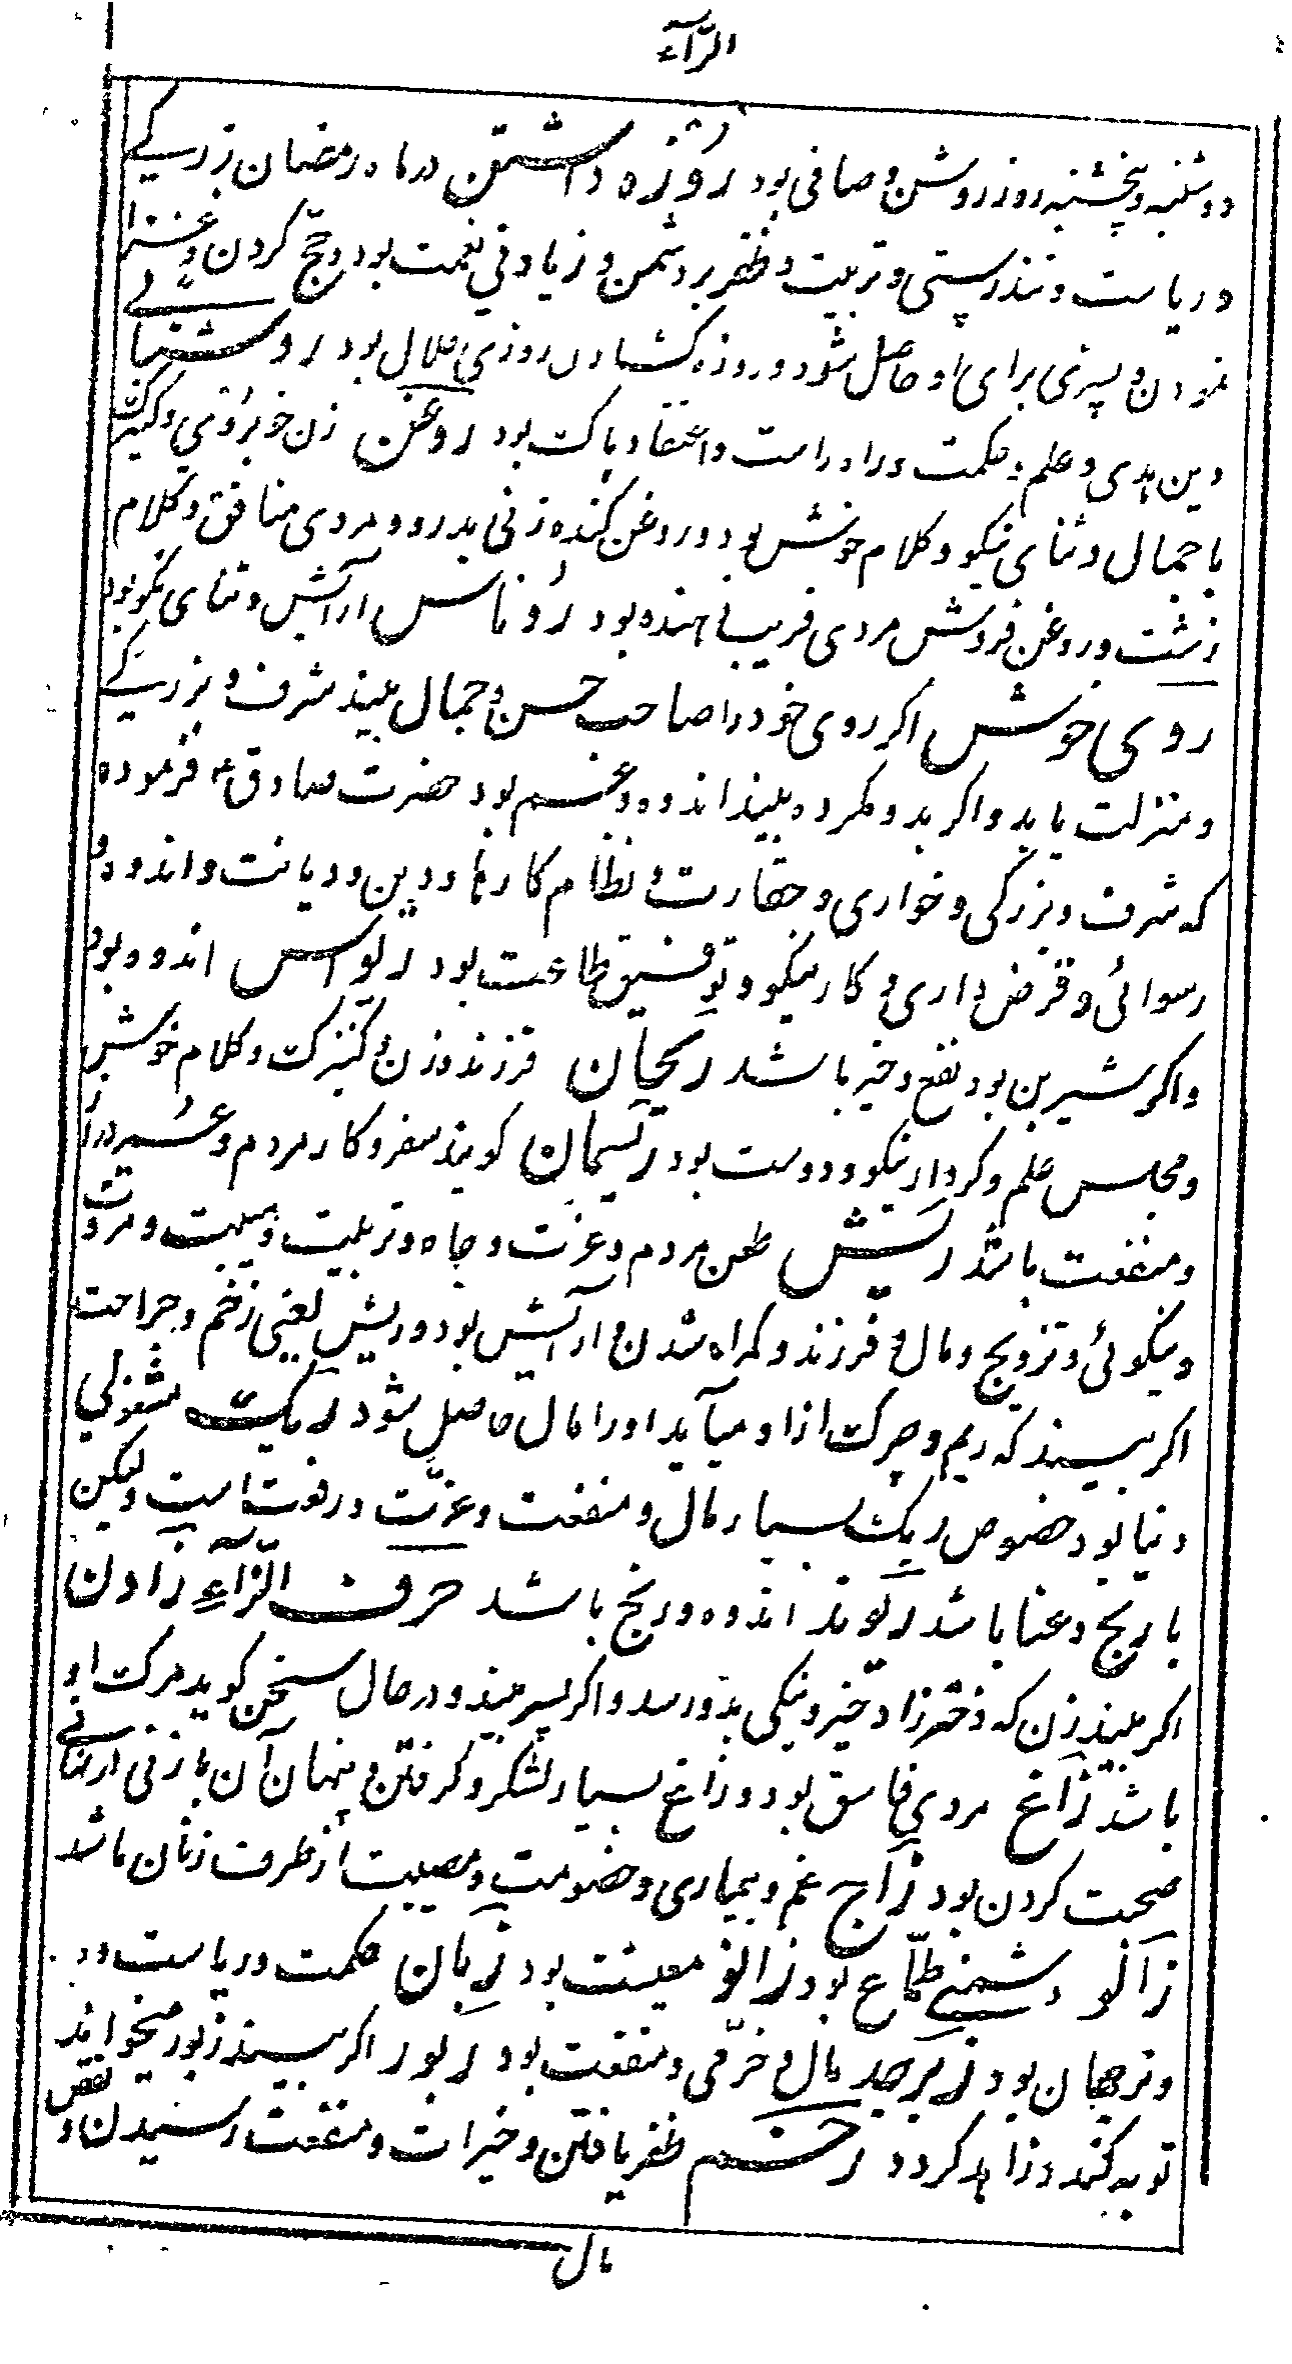 الرّآء
دوشنبه و پنجشنبه روز روشن و صافی بود روزه داشتن در ماه رمضان بزرگے
و ریاست و تندرستی و تربیت و ظفر بر دشمن و زیادتی نعمت بود و حجّ کردن و غزا
نمودن و پسری برای او حاصل شود و روزه کشادن روزی حلال بود روشنائے
دین هدی و علم و حکمت و راه راست و اعتقاد پاک بود روغن زن خوبروی و کنیزک
با جمال و ثنای نیکو و کلام خوش بود و روغن کنده زنی بدرو و مردی منافق و کلام
زشت و روغن فروش مردی فریباننده بود رُوناس آرایش و ثنای نکو بود
روی خوش اکر روی خود را صاحب حسن و جمال بیند شرف و بزرگے
و منزلت یابد و اکر بد و مکروه بیند اندوه و غم بود حضرت صادق ع فرموده
که شرف و بزرکی و خواری و حقارت و نظام کارها و دین و دیانت و اندوه و
رسوائی و قرض داری و کار نیکو و توفیق طاعت بود ریواس اندوه بود
و اکر شیرین بود نفع و خیر باشد ریحان فرزند و زن و کنیزک و کلام خوش
و مجلس علم و کردار نیکو و دوست بود ریسمان کویند سفر و کار مردم و عمر دراز
و منفعت باشد ریش طعن مردم و عزت و جاه و تربیت و هیبت و مروت
و نیکوئی و تزویج و مال و فرزند و کمراه شدن و آرایش بود و ریش یعنی زخم و جراحت
اکر بیند که ریم و چرک از او میآید او را مال حاصل شود ریک مشغولی
دنیا بود خصوص ریک بسیار مال و منفعت و عزّت و رفعت است و لیکن
با رنج و عنا باشد ریوند اندوه و رنج باشد حرف الزّاءِ زادن
اکر بیند زن که دختر زاد خیر و نیکی بدو رسد و اکر پسر بیند و در حال سخن کوید مرک او
باشد زاغ مردی فاسق بود و زاغ بسیار لشکر و کرفتن و پنهان آن با زنی ارمنائے
صحبت کردن بود زاج غم و بیماری و خصومت و مصیبت از طرف زنان باشد
زالو دشمنے طمّاع بود زانو معیشت بود زبان حکمت و ریاست و
و ترجمان بود زبرجد مال و خرّمی و منفعت بود زبور اکر بیند زبور میخواند
توبه کند و زاهد کردد زخم ظفر یافتن و خیرات و منفعت رسیدن و نقص
مال